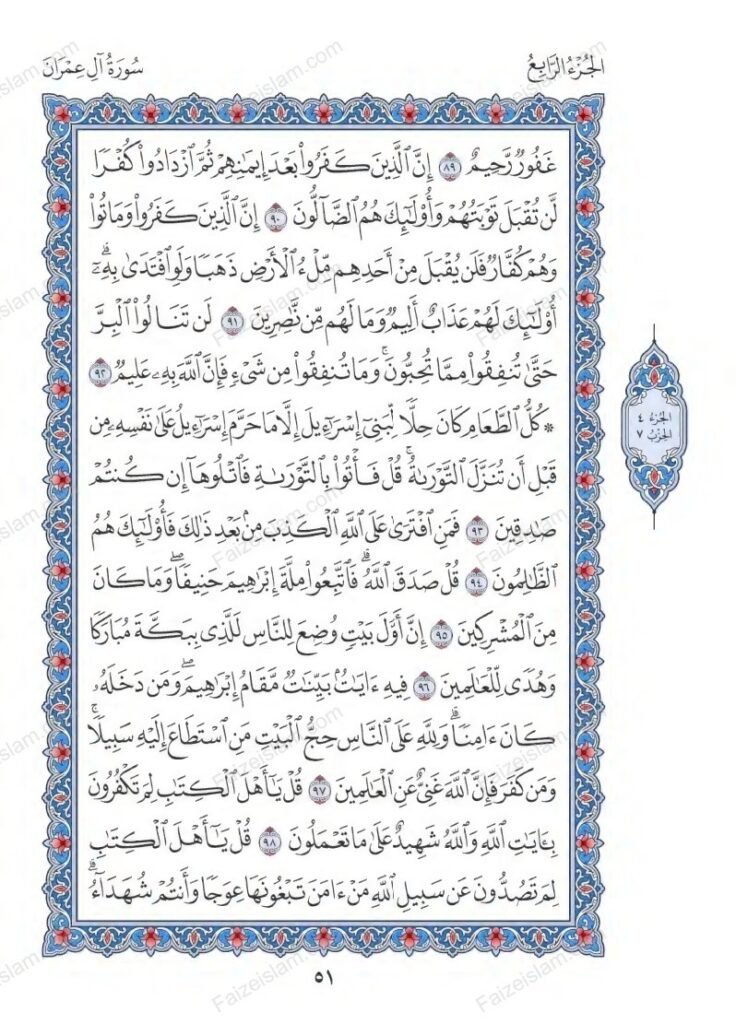 الجُزْءُ الرَّابِعُ
سُورَةُ آلِ عِمْرَانَ
غَفُورٌ رَّحِيمٌ ٨٩ إِنَّ ٱلَّذِينَ كَفَرُواْ بَعْدَ إِيمَٰنِهِمْ ثُمَّ ٱزْدَادُواْ كُفْرًا
لَّن تُقْبَلَ تَوْبَتُهُمْ وَأُوْلَٰٓئِكَ هُمُ ٱلضَّآلُّونَ ٩٠ إِنَّ ٱلَّذِينَ كَفَرُواْ وَمَاتُواْ
وَهُمْ كُفَّارٌ فَلَن يُقْبَلَ مِنْ أَحَدِهِم مِّلْءُ ٱلْأَرْضِ ذَهَبًا وَلَوِ ٱفْتَدَىٰ بِهِۦٓۗ
أُوْلَٰٓئِكَ لَهُمْ عَذَابٌ أَلِيمٌ وَمَا لَهُم مِّن نَّٰصِرِينَ ٩١ لَن تَنَالُواْ ٱلْبِرَّ
حَتَّىٰ تُنفِقُواْ مِمَّا تُحِبُّونَۚ وَمَا تُنفِقُواْ مِن شَيْءٍ فَإِنَّ ٱللَّهَ بِهِۦ عَلِيمٌ ٩٢
* كُلُّ ٱلطَّعَامِ كَانَ حِلًّا لِّبَنِيٓ إِسْرَٰٓءِيلَ إِلَّا مَا حَرَّمَ إِسْرَٰٓءِيلُ عَلَىٰ نَفْسِهِۦ مِن
قَبْلِ أَن تُنَزَّلَ ٱلتَّوْرَىٰةُۚ قُلْ فَأْتُواْ بِٱلتَّوْرَىٰةِ فَٱتْلُوهَآ إِن كُنتُمْ
صَٰدِقِينَ ٩٣ فَمَنِ ٱفْتَرَىٰ عَلَى ٱللَّهِ ٱلْكَذِبَ مِنۢ بَعْدِ ذَٰلِكَ فَأُوْلَٰٓئِكَ هُمُ
ٱلظَّٰلِمُونَ ٩٤ قُلْ صَدَقَ ٱللَّهُۗ فَٱتَّبِعُواْ مِلَّةَ إِبْرَٰهِيمَ حَنِيفًاۖ وَمَا كَانَ
مِنَ ٱلْمُشْرِكِينَ ٩٥ إِنَّ أَوَّلَ بَيْتٍ وُضِعَ لِلنَّاسِ لَلَّذِي بِبَكَّةَ مُبَارَكًا
وَهُدًى لِّلْعَٰلَمِينَ ٩٦ فِيهِ ءَايَٰتٌۢ بَيِّنَٰتٌ مَّقَامُ إِبْرَٰهِيمَۖ وَمَن دَخَلَهُۥ
كَانَ ءَامِنًاۗ وَلِلَّهِ عَلَى ٱلنَّاسِ حِجُّ ٱلْبَيْتِ مَنِ ٱسْتَطَاعَ إِلَيْهِ سَبِيلًاۚ
وَمَن كَفَرَ فَإِنَّ ٱللَّهَ غَنِيٌّ عَنِ ٱلْعَٰلَمِينَ ٩٧ قُلْ يَٰٓأَهْلَ ٱلْكِتَٰبِ لِمَ تَكْفُرُونَ
بِـَٔايَٰتِ ٱللَّهِ وَٱللَّهُ شَهِيدٌ عَلَىٰ مَا تَعْمَلُونَ ٩٨ قُلْ يَٰٓأَهْلَ ٱلْكِتَٰبِ
لِمَ تَصُدُّونَ عَن سَبِيلِ ٱللَّهِ مَنْ ءَامَنَ تَبْغُونَهَا عِوَجًا وَأَنتُمْ شُهَدَآءُۗ
الجُزْءُ ٤
الحِزْبُ ٧
٥١
Faizeislam.com